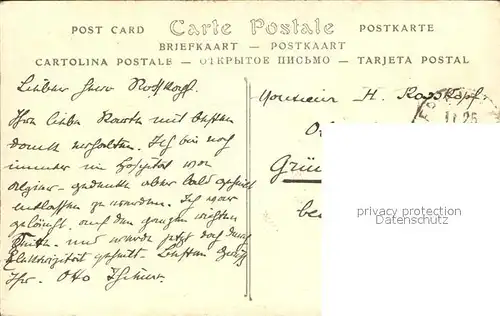 POST CARD Carte Postale POSTKARTE
BRIEFKAART — POSTKAART
CARTOLINA POSTALE — ОТКРЫТОЕ ПИСЬМО — TARJETA POSTAL
Lieber Herr Rosskopf.
Ihre liebe Karte mit bestem
Dank erhalten. Ich bin noch
immer im Hospital von
gedenke aber bald geheilt
entlassen zu werden. Ich war
gelähmt auf der ganzen rechten
Seite und werde jetzt doch durch
Elektrizität geheilt. Besten Gruß
Ihr Otto
Monsieur H. Rosskopf.
Grün
bei
11 26
privacy protection
Datenschutz